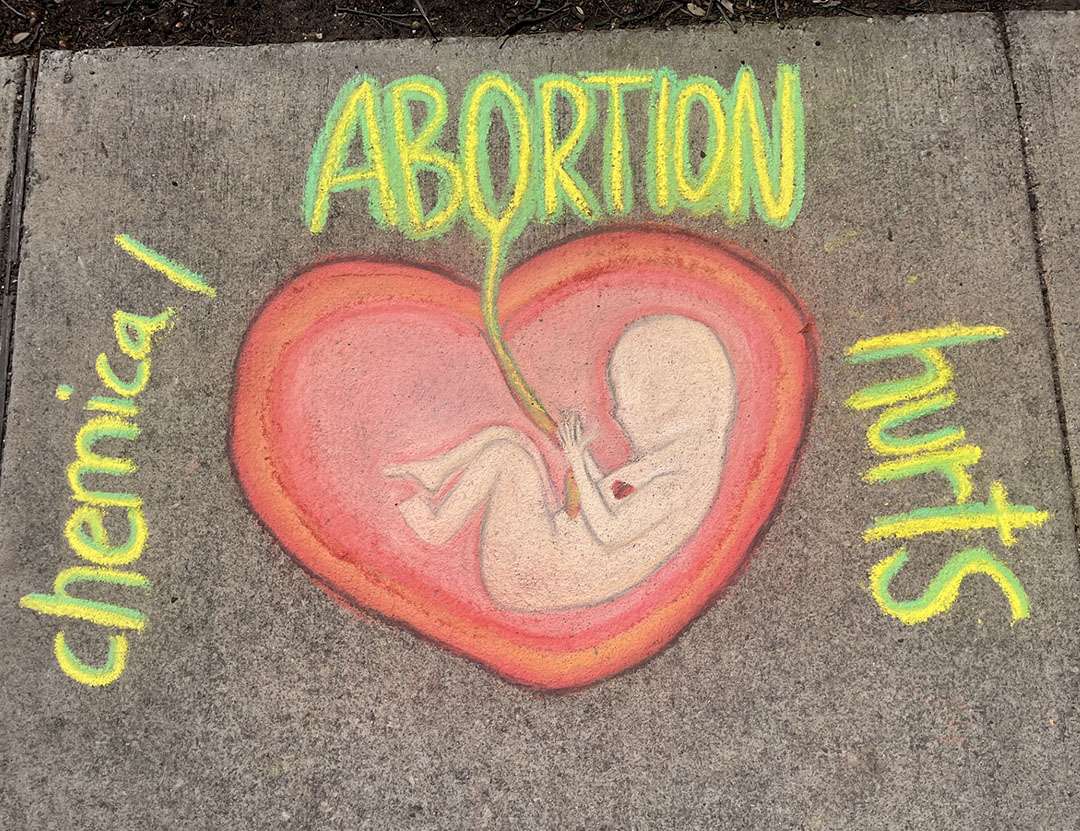 chemical
ABORTION
hurts